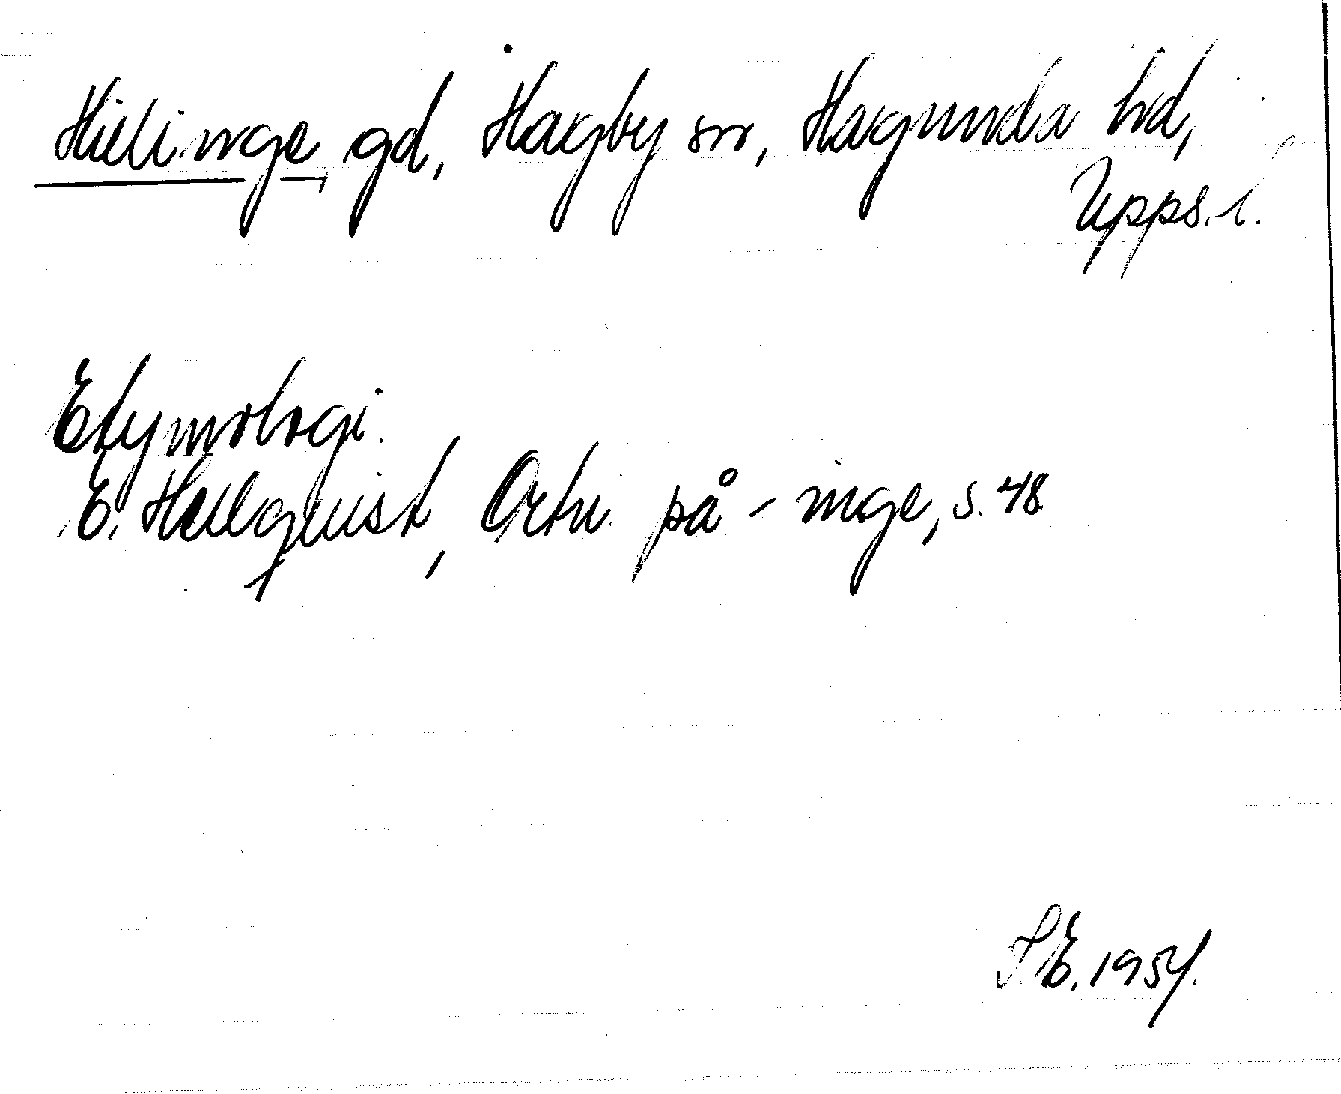 Hällinge gd, Hagby sn, Hagunda hd,
Upps. l.
Etymologi.
E. Hellquist, Ortn. på -inge, s. 48
S E. 1954.